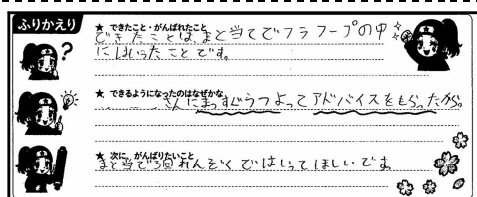 ふりかえり
★ できたこと・がんばれたこと
できたことは、まと当てでフラフープの中
にはいったことです。
?
★ できるようになったのはなぜかな
さんにまっすぐうつよってアドバイスをもらったから。
★ 次に、がんばりたいこと
まと当てで3回れんぞくではいってほしいです